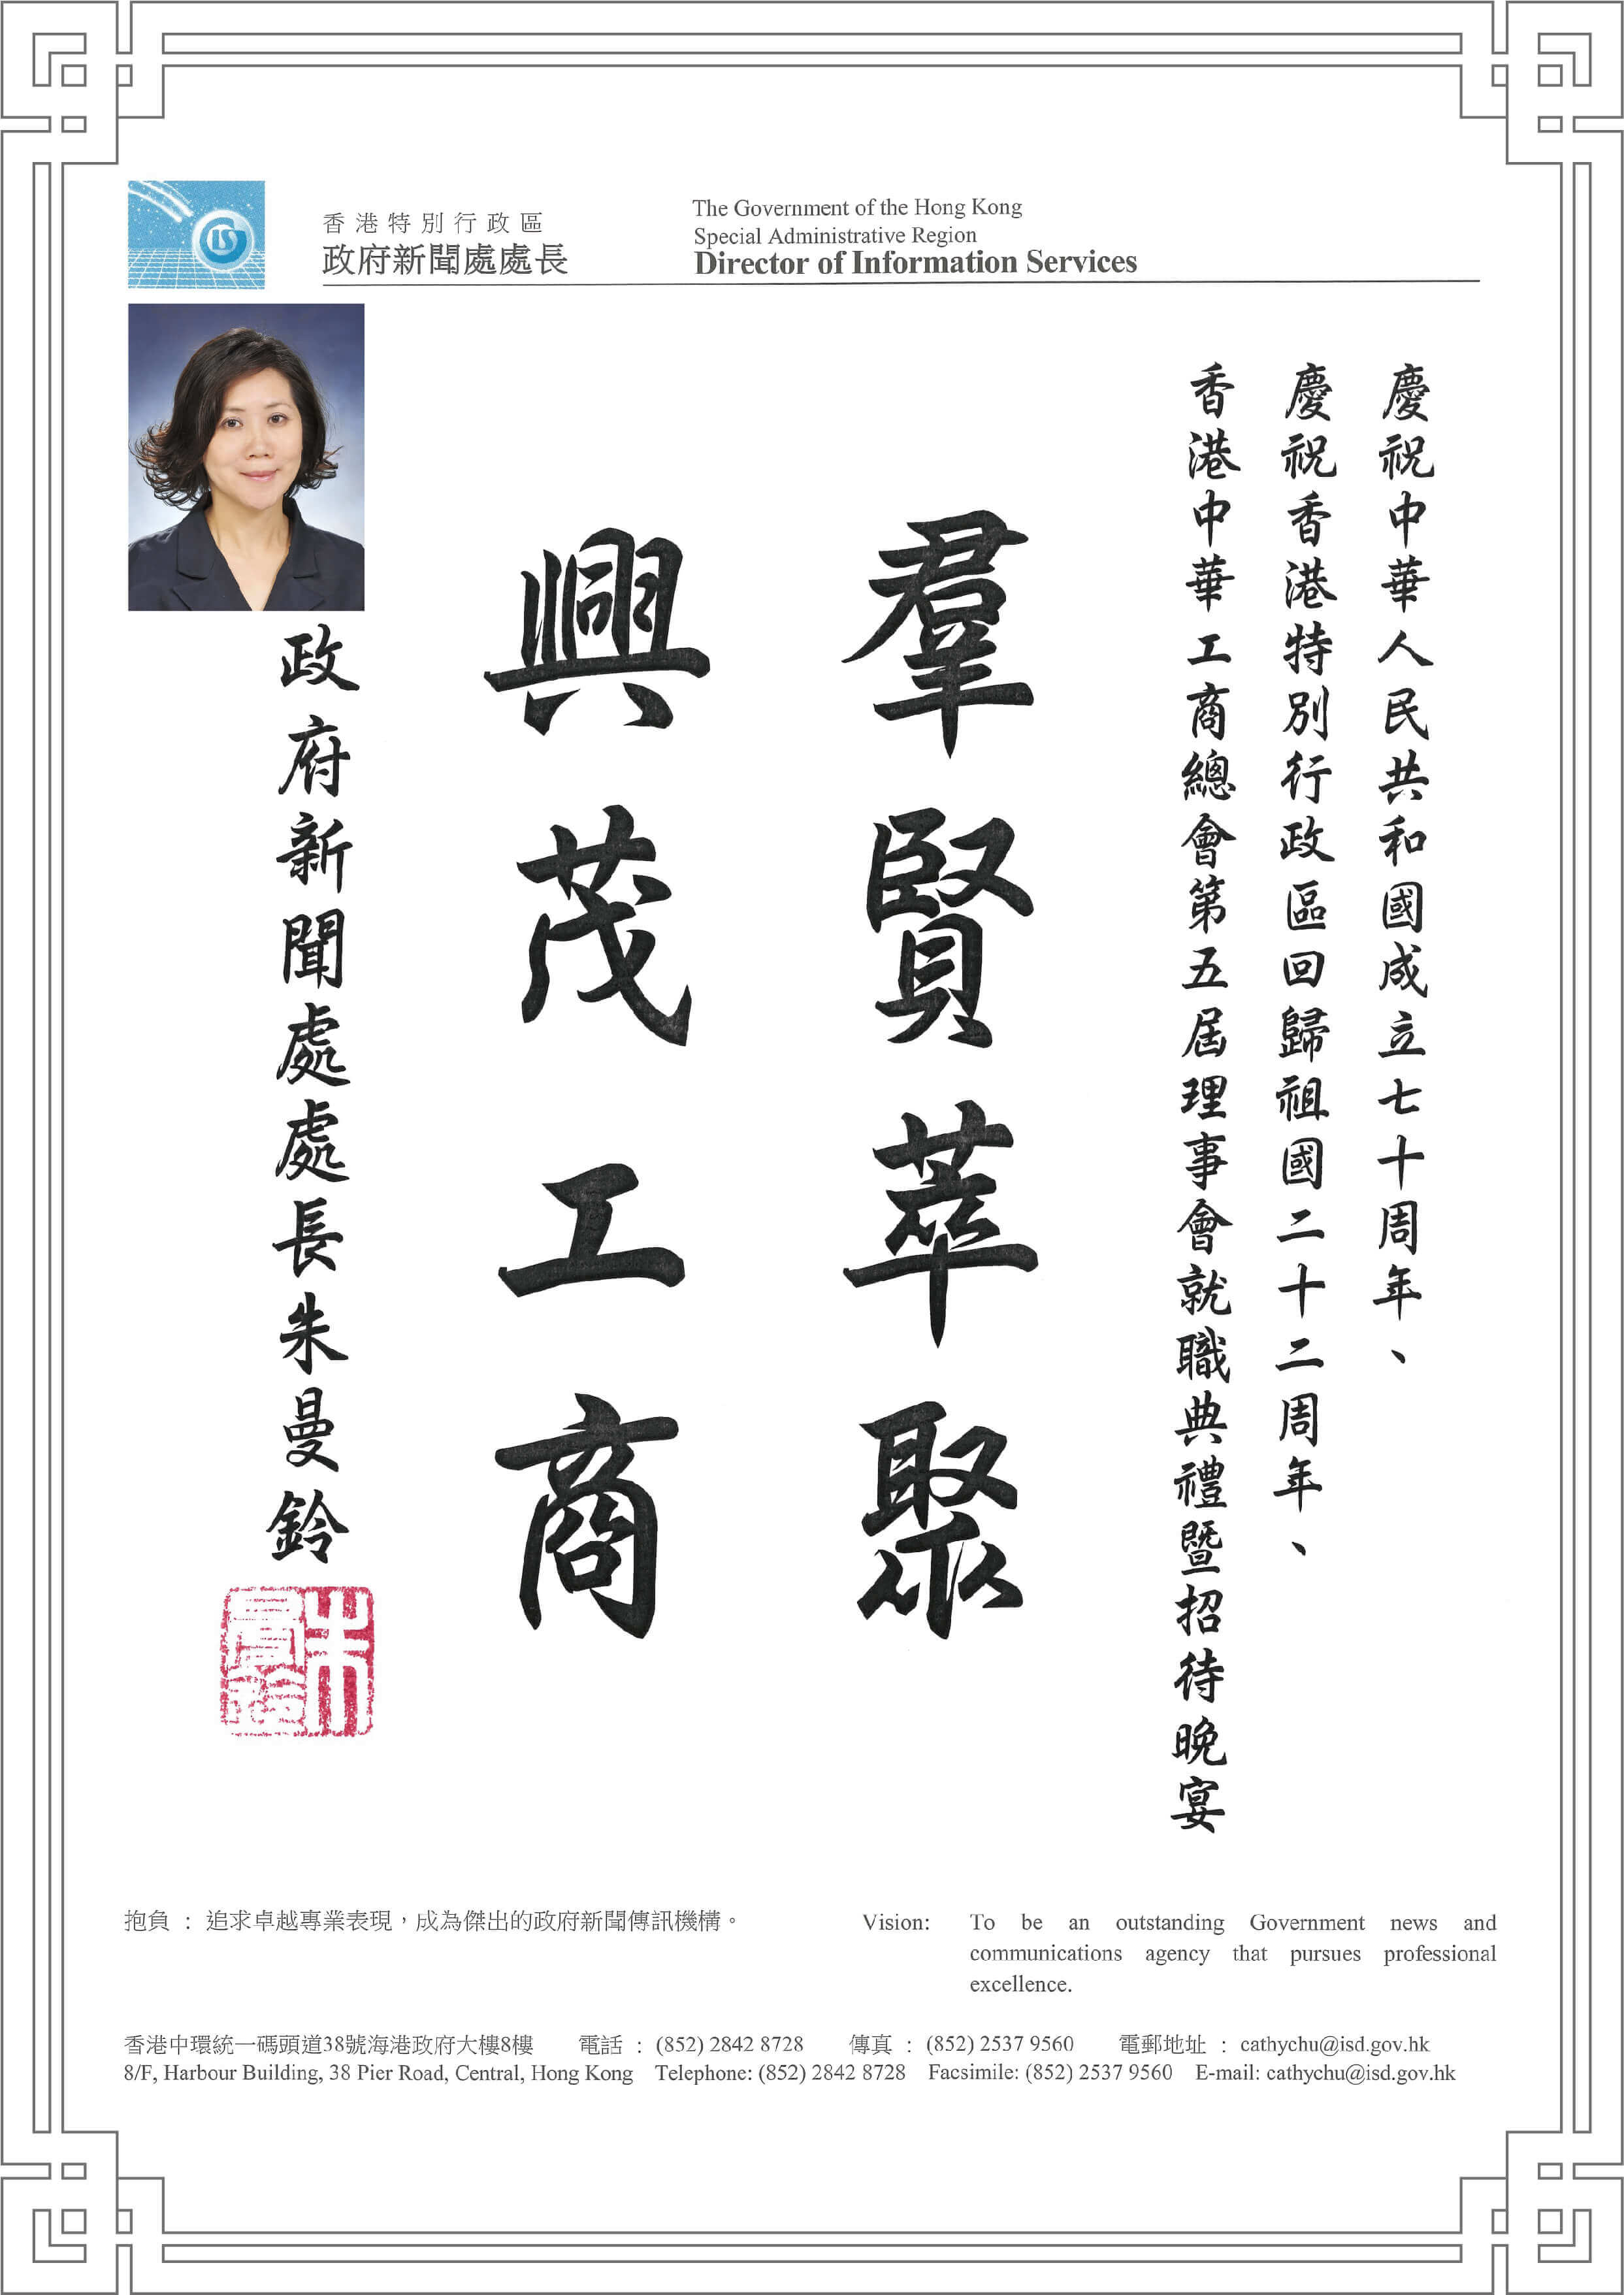 ISD
香港特別行政區
政府新聞處處長
The Government of the Hong Kong
Special Administrative Region
Director of Information Services
慶祝中華人民共和國成立七十周年、
慶祝香港特別行政區回歸祖國二十二周年、
香港中華工商總會第五屆理事會就職典禮暨招待晚宴
羣賢萃聚
興茂工商
政府新聞處處長朱曼鈴
朱曼鈴
抱負 : 追求卓越專業表現,成為傑出的政府新聞傳訊機構。
Vision: To be an outstanding Government news and
communications agency that pursues professional
excellence.
香港中環統一碼頭道38號海港政府大樓8樓 電話 : (852) 2842 8728 傳真 : (852) 2537 9560 電郵地址 : cathychu@isd.gov.hk
8/F, Harbour Building, 38 Pier Road, Central, Hong Kong Telephone: (852) 2842 8728 Facsimile: (852) 2537 9560 E-mail: cathychu@isd.gov.hk